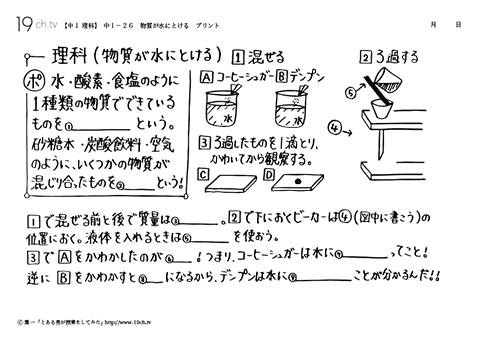 19ch.tv 【中1 理科】 中1-26 物質が水にとける プリント 月 日
理科(物質が水にとける)
ポ 水・酸素・食塩のように
1種類の物質でできている
ものを① という。
砂糖水・炭酸飲料・空気
のように、いくつかの物質が
混じり合ったものを② という!
1 混ぜる
A コーヒーシュガー B デンプン
水 水
3 ろ過したものを1滴とり、
かわいてから観察する。
C D
2 ろ過する
⑤
④
1 で混ぜる前と後で質量は③ 。 2 で下におくビーカーは④(図中に書こう)の
位置におく。液体を入れるときは⑤ を使おう。
3 で A をかわかしたのが⑥ !つまり、コーヒーシュガーは水に⑦ ってこと!
逆に B をかわかすと⑧ になるから、デンプンは水に⑨ ことが分かるんだ!!
© 葉一「とある男が授業をしてみた」http://www.19ch.tv